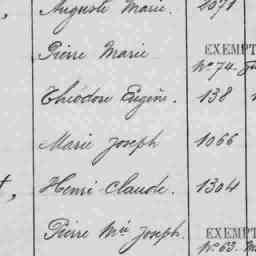 Auguste Marie. 1071
Pierre Marie EXEMPT
Nº 74.
Théodore Eugène. 138
Marie Joseph 1066
Henri Claude. 1304
Pierre Mie Joseph. EXEMPT
Nº 63.